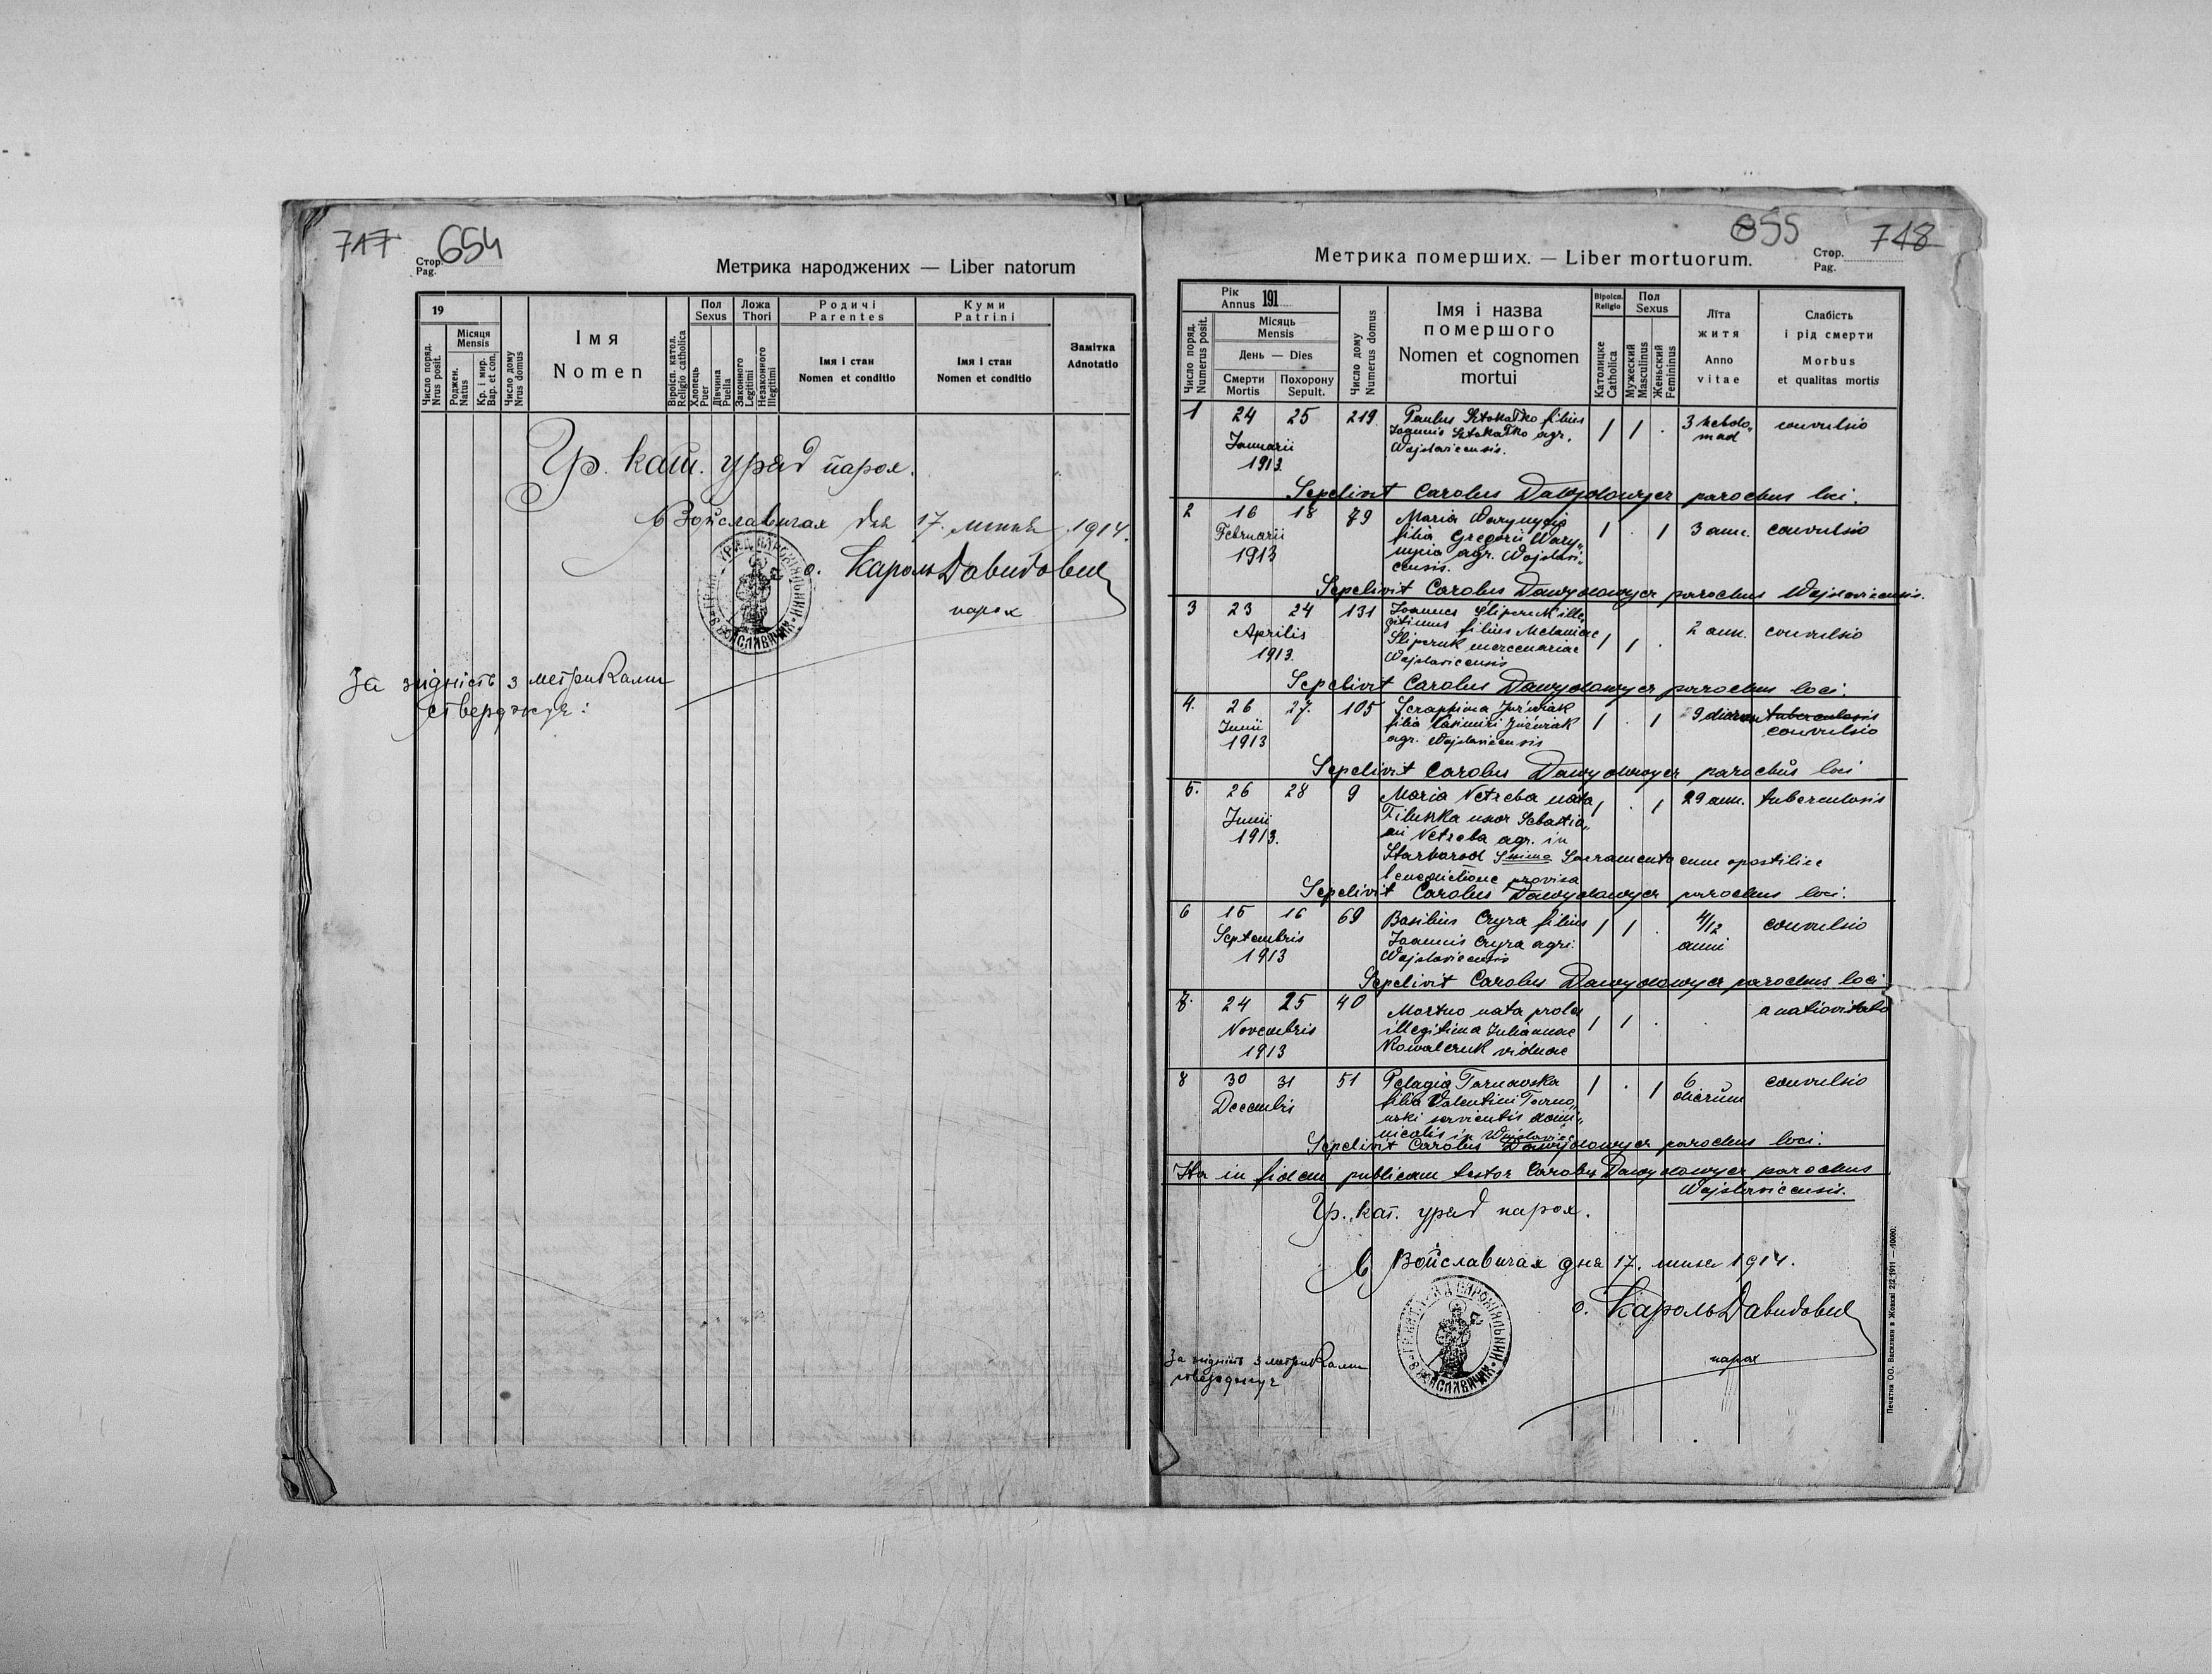 717 654
Стор.
Pag.
Метрика народжених — Liber natorum
19
Число поряд.
Nrus posit.
Місяця
Mensis
Роджен.
Natus
Кр. і мир.
Bap. et con.
Число дому
Nrus domus
Імя
Nomen
Віроісп. катол.
Religio catholica
Пол
Sexus
Хлопець
Puer
Дівчина
Puella
Ложа
Thori
Законного
Legitimi
Незаконного
Illegitimi
Родичі
Parentes
Імя і стан
Nomen et conditio
Куми
Patrini
Імя і стан
Nomen et conditio
Замітка
Adnotatio
Гр. кат. уряд парох.
в Войславичах дня 17. 1914.
о. Кароль Давидович
парох
За згідність з метриками
стверджує:
655 748
Метрика померших. — Liber mortuorum.
Стор.
Pag.
Рік
Annus 191
Число поряд.
Numerus posit.
Місяць
Mensis
День — Dies
Смерти
Mortis
Похорону
Sepult.
Число дому
Numerus domus
Імя і назва
помершого
Nomen et cognomen
mortui
Віроісп.
Religio
Католицке
Catholica
Пол
Sexus
Мужеский
Masculinus
Женьский
Femininus
Літа
житя
Anno
vitae
Слабість
і рід смерти
Morbus
et qualitas mortis
1 24 25 219 Paulus filius 1 1 . 3 hebdo„ convulsio
Januarii Joannis agr. mad
1913. Wojslavicensis.
Sepelivit Carolus Dawydowycz parochus loci.
2 16 18 79 Maria Warynycia 1 . 1 3 ann. convulsio
Februarii filia Gregorii Wary„
1913 nycia agr. Wojslavi„
censis.
Sepelivit Carolus Dawydowycz parochus Wojslavicensis.
3 23 24 131 Joannes Slipczuk ille„ 1 1 . 2 ann. convulsio
Aprilis gitimus filius Melaniae
1913. Slipczuk mercenariae
Wojslavicensis
Sepelivit Carolus Dawydowycz parochus loci.
4. 26 27. 105 Seraphina Juzwiak 1 . 1 9 dierum tuberculosis
Junii filia Casimiri Juzwiak convulsio
1913 agr. Wojslavicensis
Sepelivit Carolus Dawydowycz parochus loci
5. 26 28 9 Maria Netreba nata 1 . 1 29 ann. tuberculosis
Junii uxor Sebastia„
1913. ni Netreba agr. in
Sacramento cum apostilice
benedictione provisa
Sepelivit Carolus Dawydowycz parochus loci.
6 15 16 69 Basilius Cyra filius 1 1 . 4/12 convulsio
Septembris Joannis Cyra agri. anni
1913 Wojslavicensis
Sepelivit Carolus Dawydowycz parochus loci
7. 24 25 40 Mortuo nata proles 1 1 . . a nativitate
Novembris illegitima Juliannae
1913 Kowalczuk viduae
8 30 31 51 Pelagia Tarnowska 1 . 1 6 convulsio
Decembris filia Valentini Tarno„ dierum
wski servientis domi„
nicalis in Wojslavice
Sepelivit Carolus Dawydowycz parochus loci.
Ita in fidem publicam testor Carolus Dawydowycz parochus
Wojslavicensis.
Гр. кат. уряд парох.
в Войславичах дня 17. 1914.
о. Кароль Давидович
парох
За згідність з метриками
стверджує
Печатня ОО. Василиян в Жовкві 2|2 1911 — 10000.